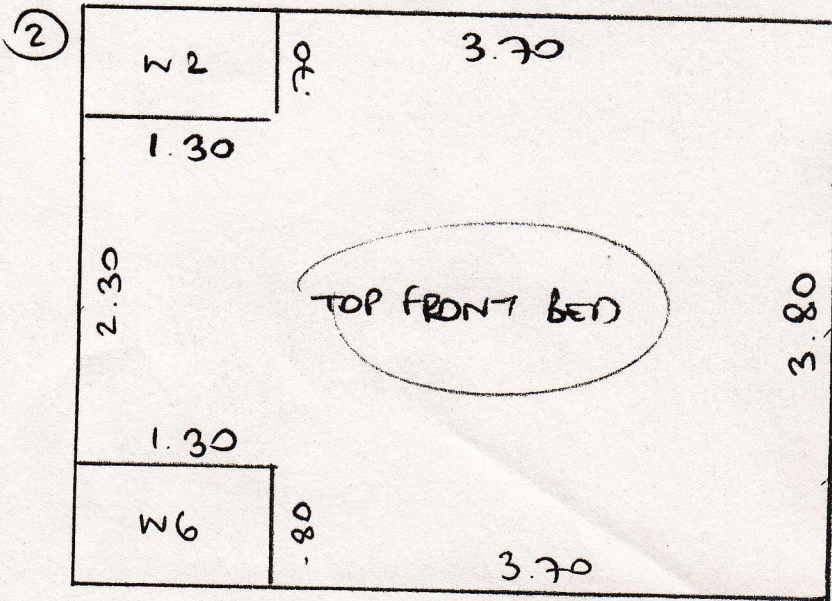 2
W2
.70
3.70
1.30
2.30
TOP FRONT BED
3.80
1.30
W6
.80
3.70